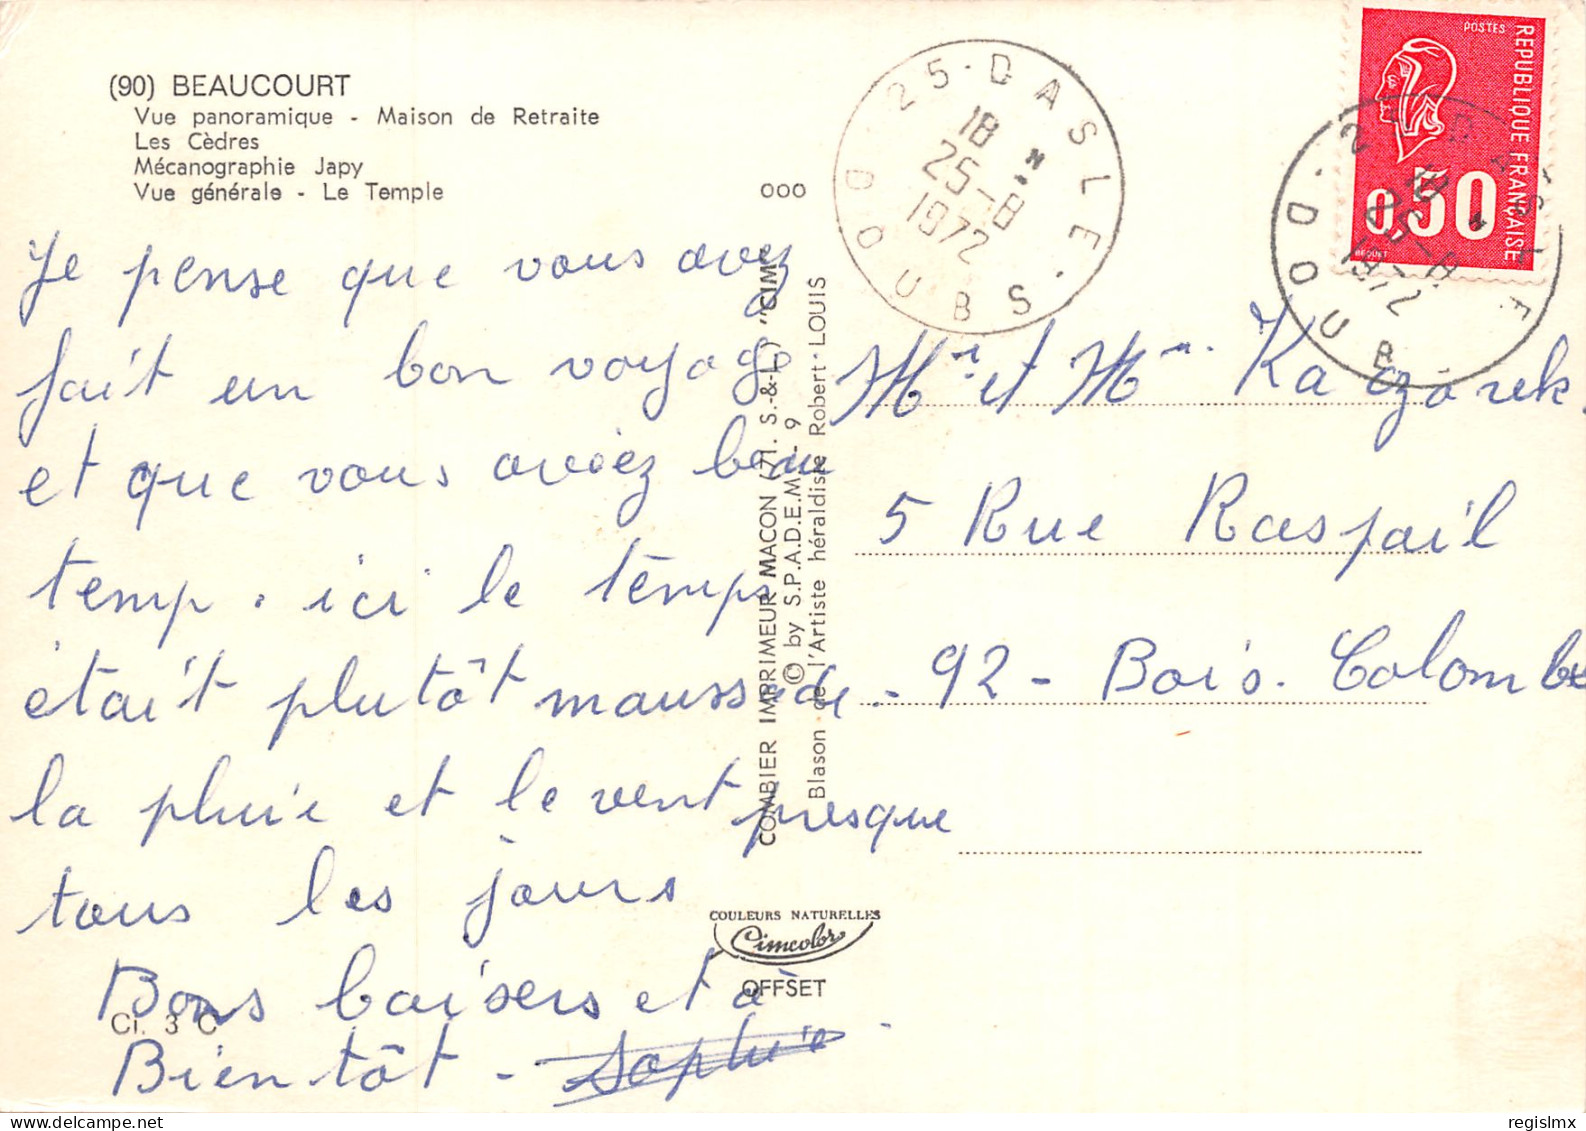 (90) BEAUCOURT
Vue panoramique - Maison de Retraite
Les Cèdres
Mécanographie Japy
Vue générale - Le Temple
000
Je pense que vous avez
fait un bon voyage
et que vous aviez beau
temp. ici le temps
était plutôt maussade.
la pluie et le vent presque
tous les jours
Bons baisers et à
Bientôt - Sophie.
Ci. 3 C
COMBIER IMPRIMEUR MACON (71. S.-&-L.) "CIM"
© by S.P.A.D.E.M. - 9
Blason de l'Artiste héraldiste Robert LOUIS
COULEURS NATURELLES
Cimcolor
OFFSET
25 - DASLE - DOUBS
18 H
25-8
1972
POSTES
REPUBLIQUE FRANÇAISE
0,50
BEQUET
25 - DASLE - DOUB
18 H
25-8
1972
Mr et Mm. Kaczorek.
5 Rue Raspail
92 - Bois. Colombes
regislmx